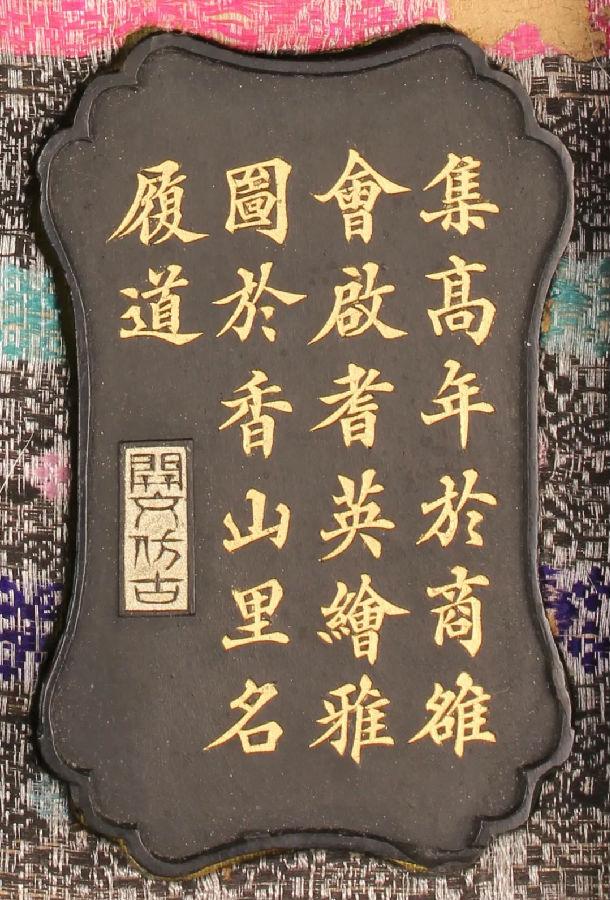 集髙年於商雒
會啟耆英繪雅
圖於香山里名
履道
開文仿古